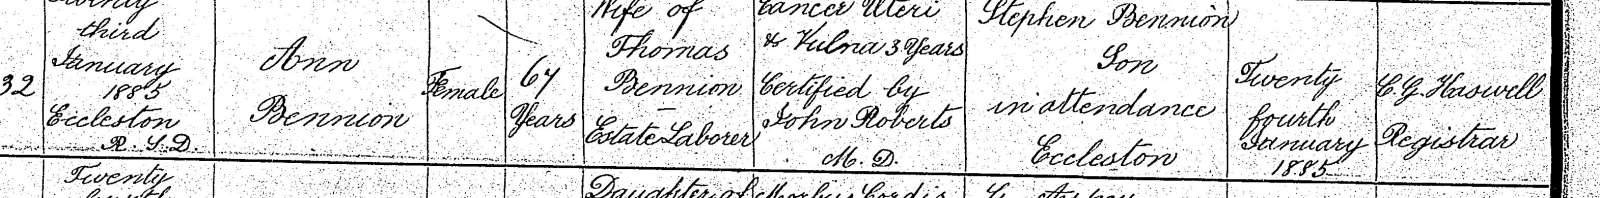 third
January
1885
Eccleston
R. S. D.
32
Ann
Bennion
Female
67
Years
Wife of
Thomas
Bennion
Estate Laborer
Cancer Uteri
& Vulna 3 Years
Certified by
John Roberts
M. D.
Stephen Bennion
Son
in attendance
Eccleston
Twenty
fourth
January
1885
C. G. Haswell
Registrar
Twenty
Daughter of
Morbus Cordis